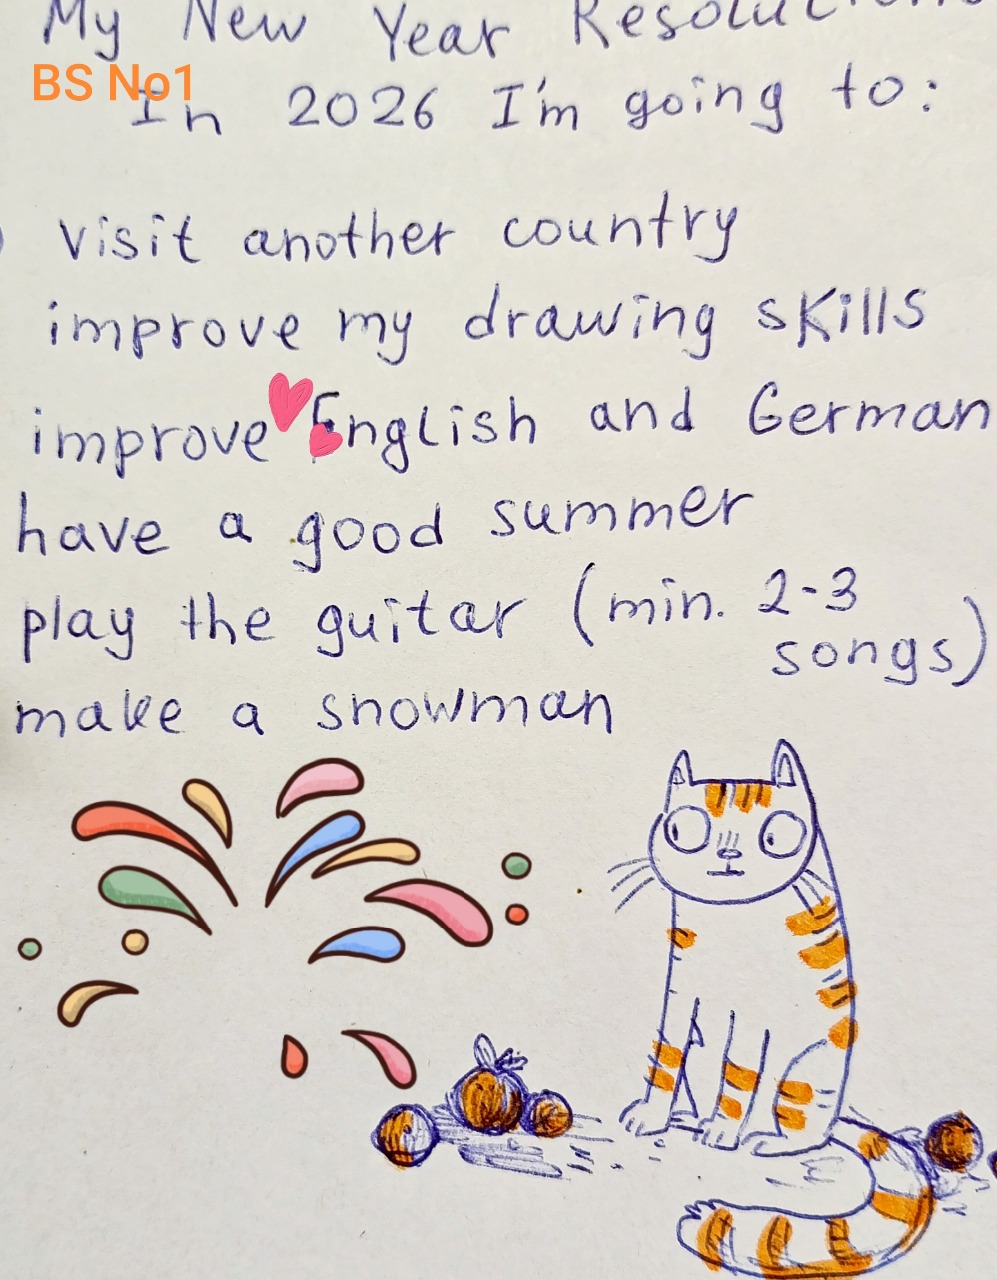 My New Year Resolutions
BS No1
In 2026 I'm going to:
visit another country
improve my drawing skills
improve English and German
have a good summer
play the guitar (min. 2-3
songs)
make a snowman